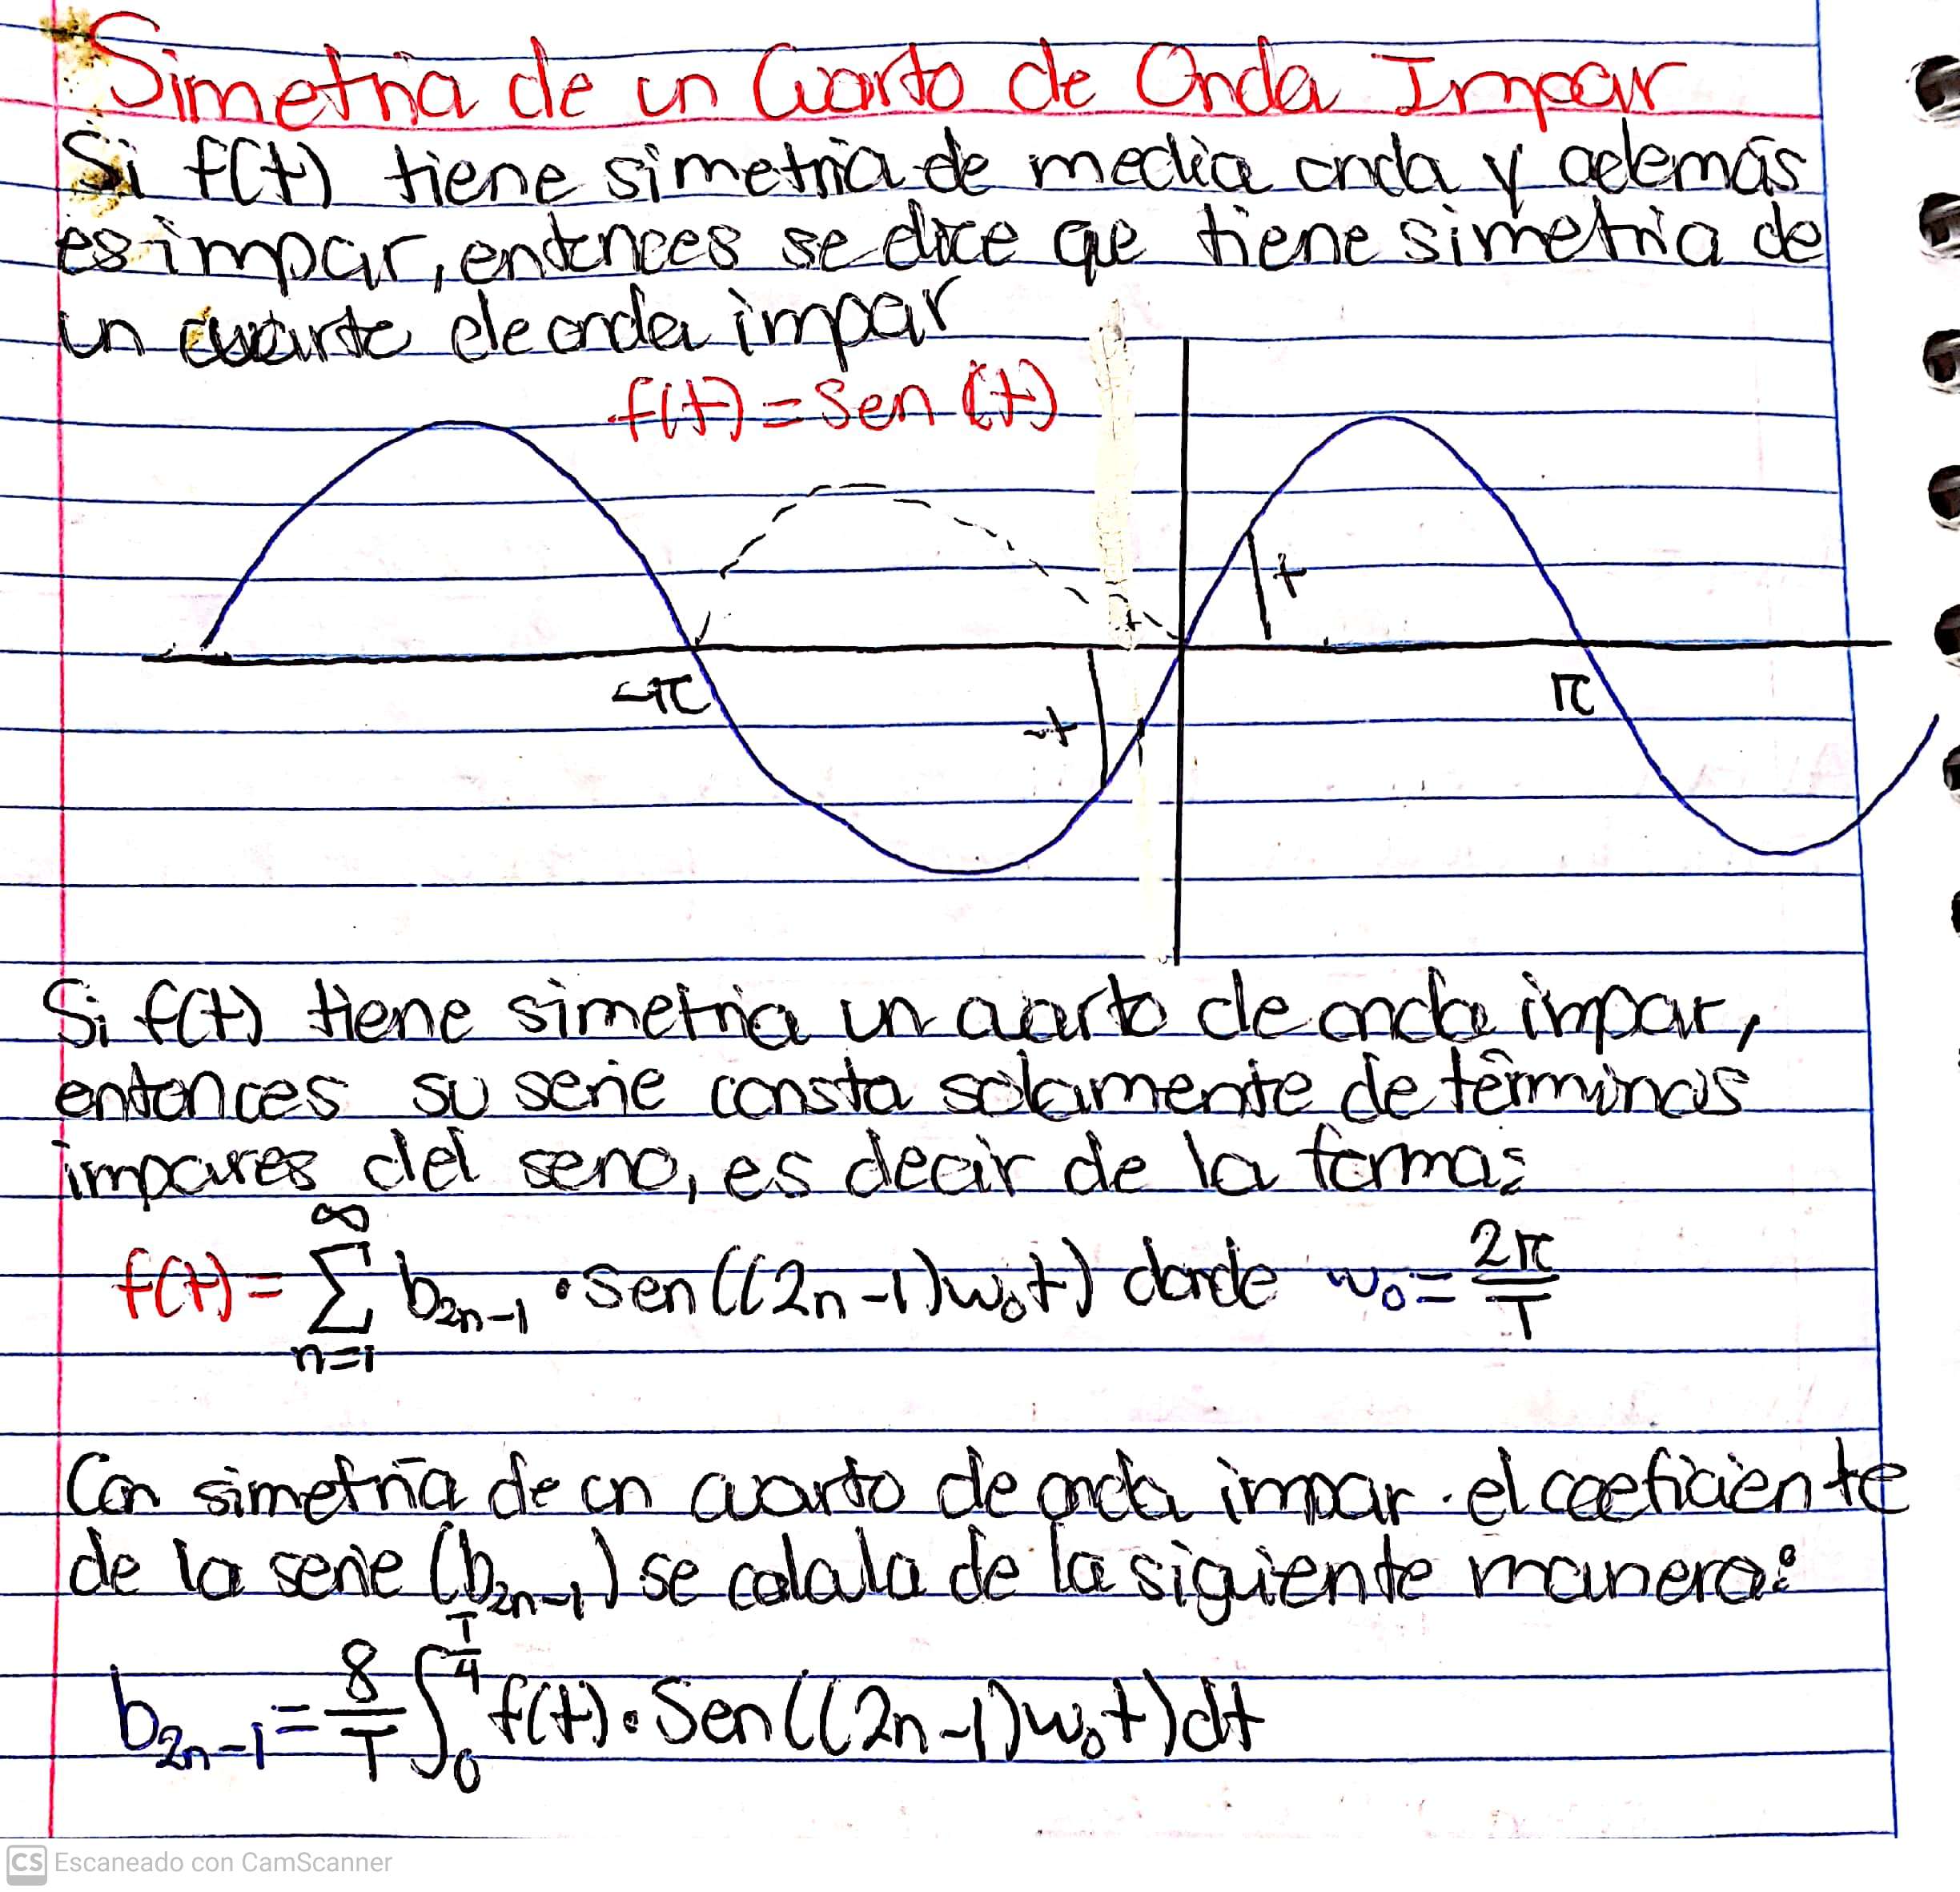 Simetria de un Cuarto de Onda Impar
Si f(t) tiene simetria de media onda y además
es impar, entonces se dice que tiene simetria de
un cuarto de onda impar
f(t) = Sen (t)
t
-π
π
-t
Si f(t) tiene simetria un cuarto de onda impar,
entonces su serie consta solamente de términos
impares del seno, es decir de la forma:
f(t) = ∑_{n=1}^{∞} b_{2n-1} · Sen((2n-1)w₀t) donde w₀ = 2π/T
Con simetria de un cuarto de onda impar el coeficiente
de la serie (b_{2n-1}) se calcula de la siguiente manera:
b_{2n-1} = 8/T ∫_0^{T/4} f(t) · Sen((2n-1)w₀t)dt
CS Escaneado con CamScanner